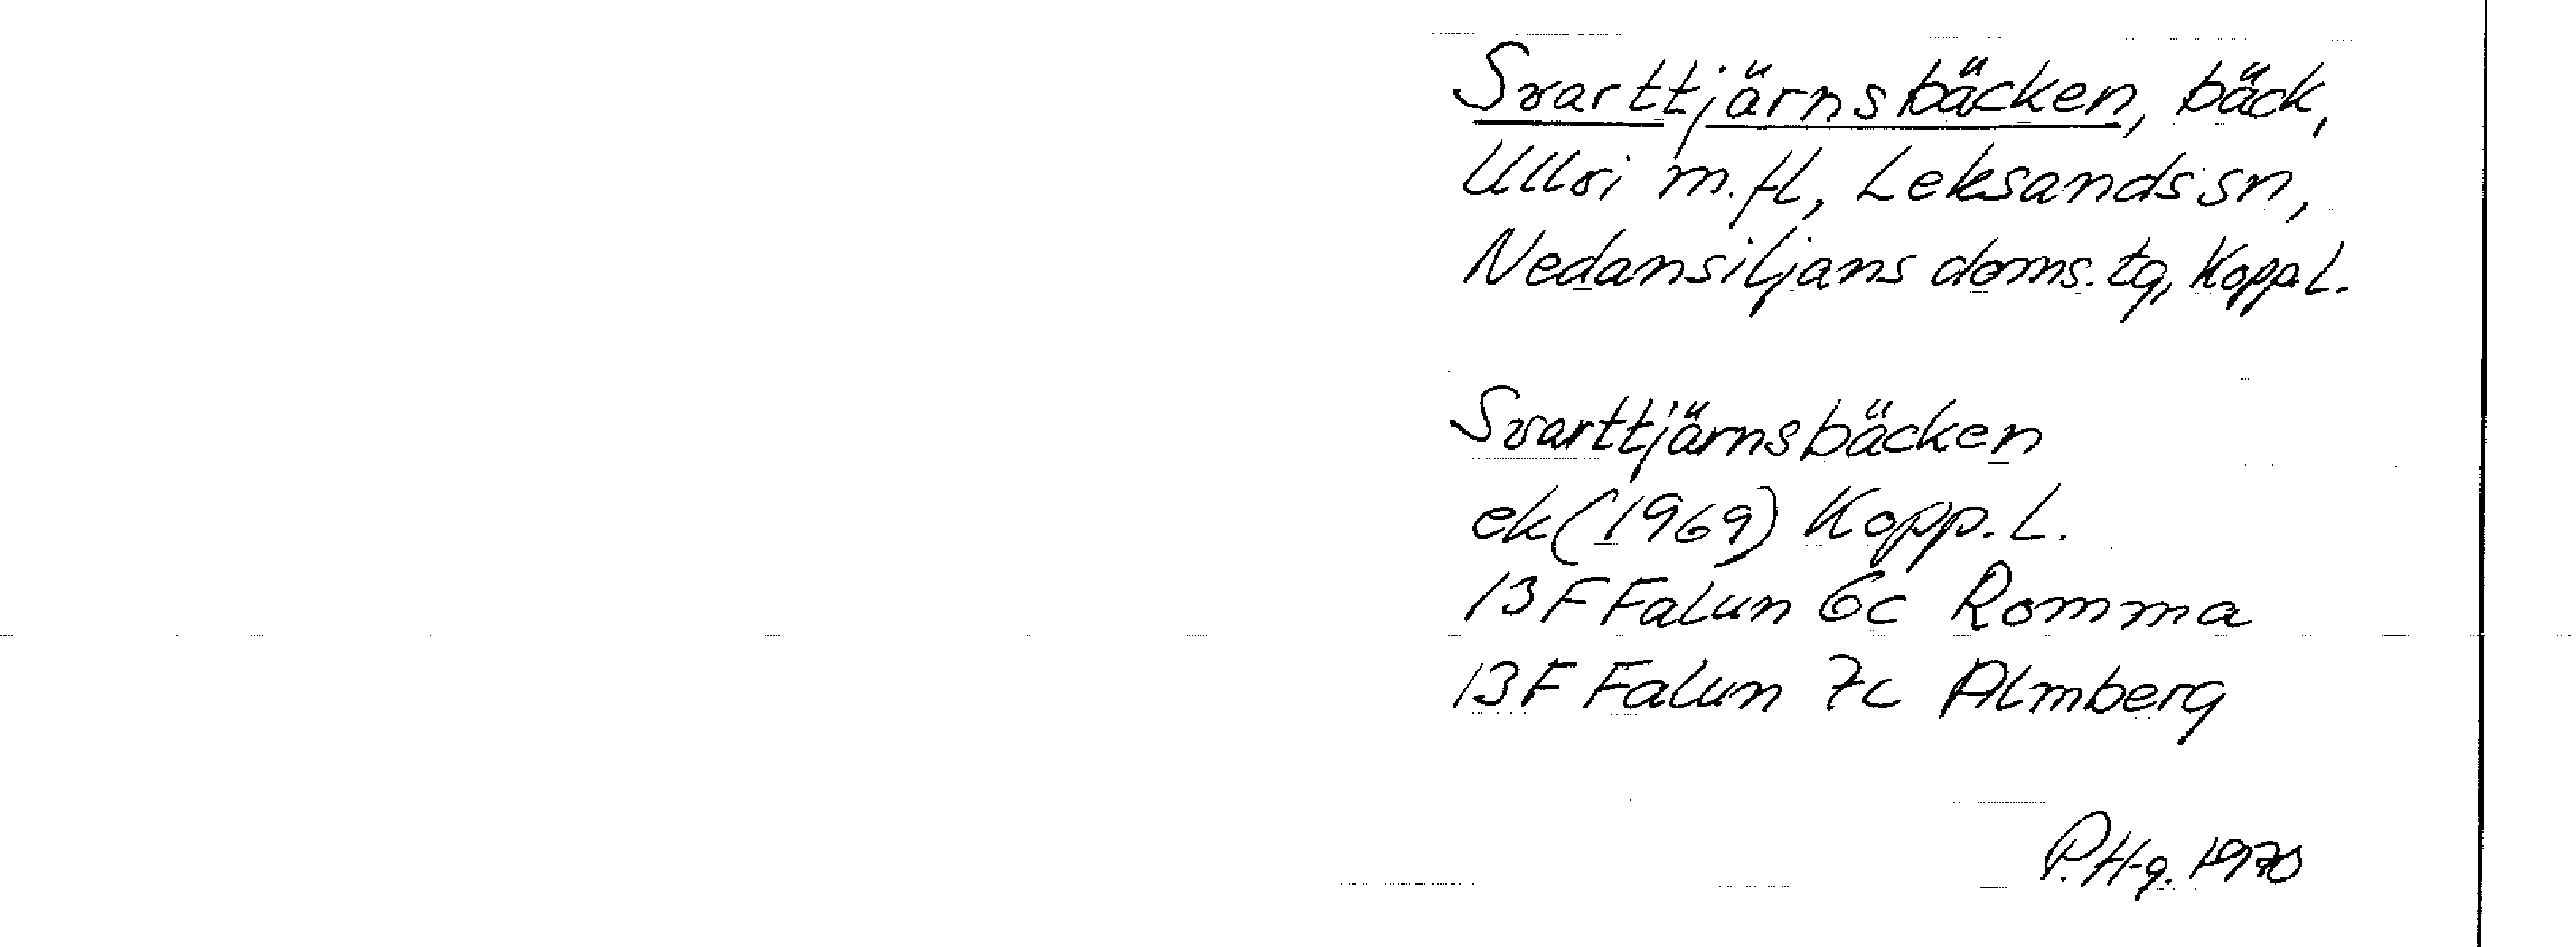 Svarttjärnsbäcken, bäck,
Ullvi m.fl, Leksands sn,
Nedansiljans doms. tg, Kopp.L.
Svarttjärnsbäcken
ek (1969) Kopp. L.
13F Falun 6c Romma
13F Falun 7c Almberg
P.H-g. 1970